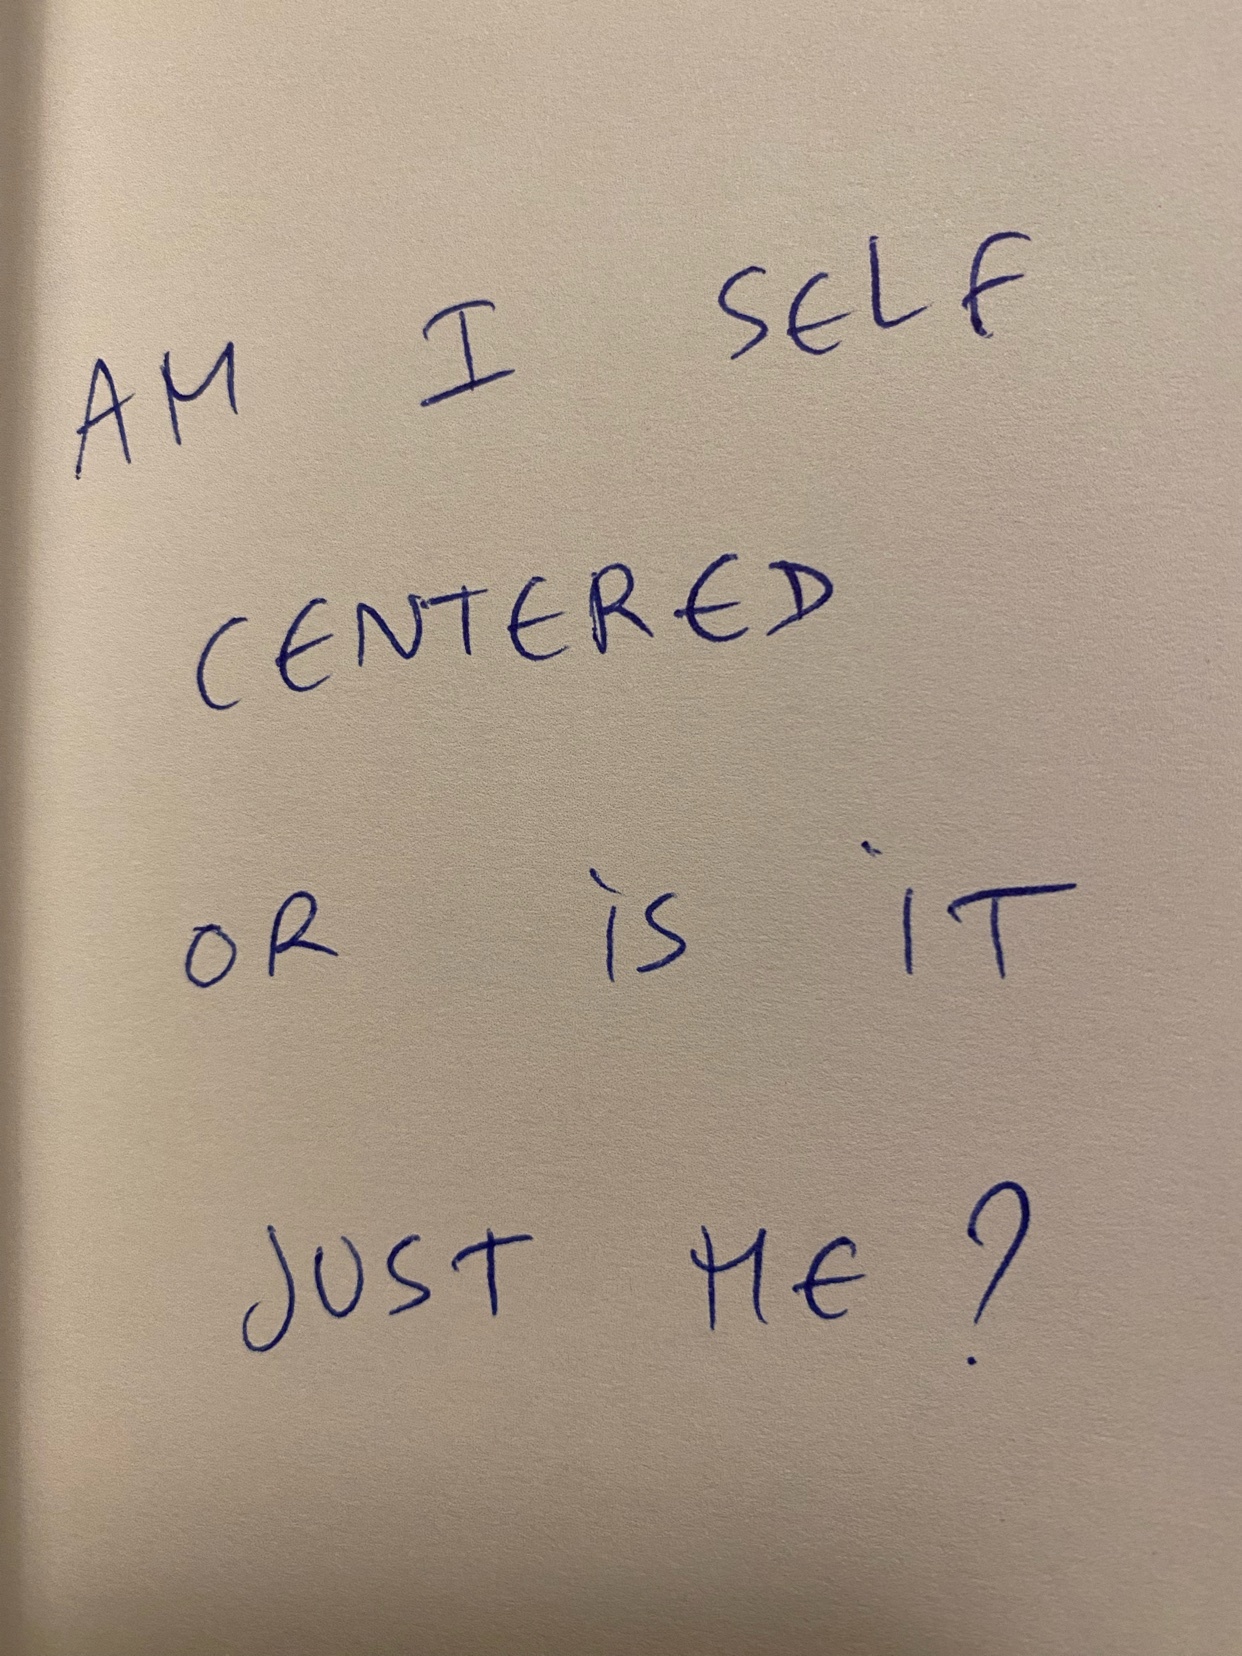 AM I SELF
CENTERED
OR iS iT
JUST ME?